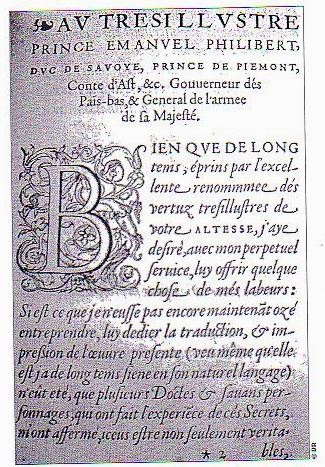 ❧AV TRESILLVSTRE
PRINCE EMANVEL PHILIBERT,
DVC DE SAVOYE, PRINCE DE PIEMONT,
Conte d'Ast, &c. Gouuerneur dés
Païs-bas, & General de l'armee
de sa Majesté.
BIEN QVE DE LONG
tems, éprins par l'excel-
lente renommmee dés
vertuz tresillustres de
votre ALTESSE, j'aye
desiré, auec mon perpetuel
seruice, luy offrir quelque
chose de més labeurs:
Si est ce que je n'eusse pas encore maintenãt ozé
entreprendre, luy dedier la traduction, & im-
pression de l'œuure presente (veu méme qu'elle
est ja de long tems siene en son naturel langage)
n'eût eté, que plusieurs Doctes & sauans per-
sonnages, qui ont fait l'experiẽce de cés Secrets,
m'ont affermé, iceus estre non seulement verita-
* 2 bles,
© DR